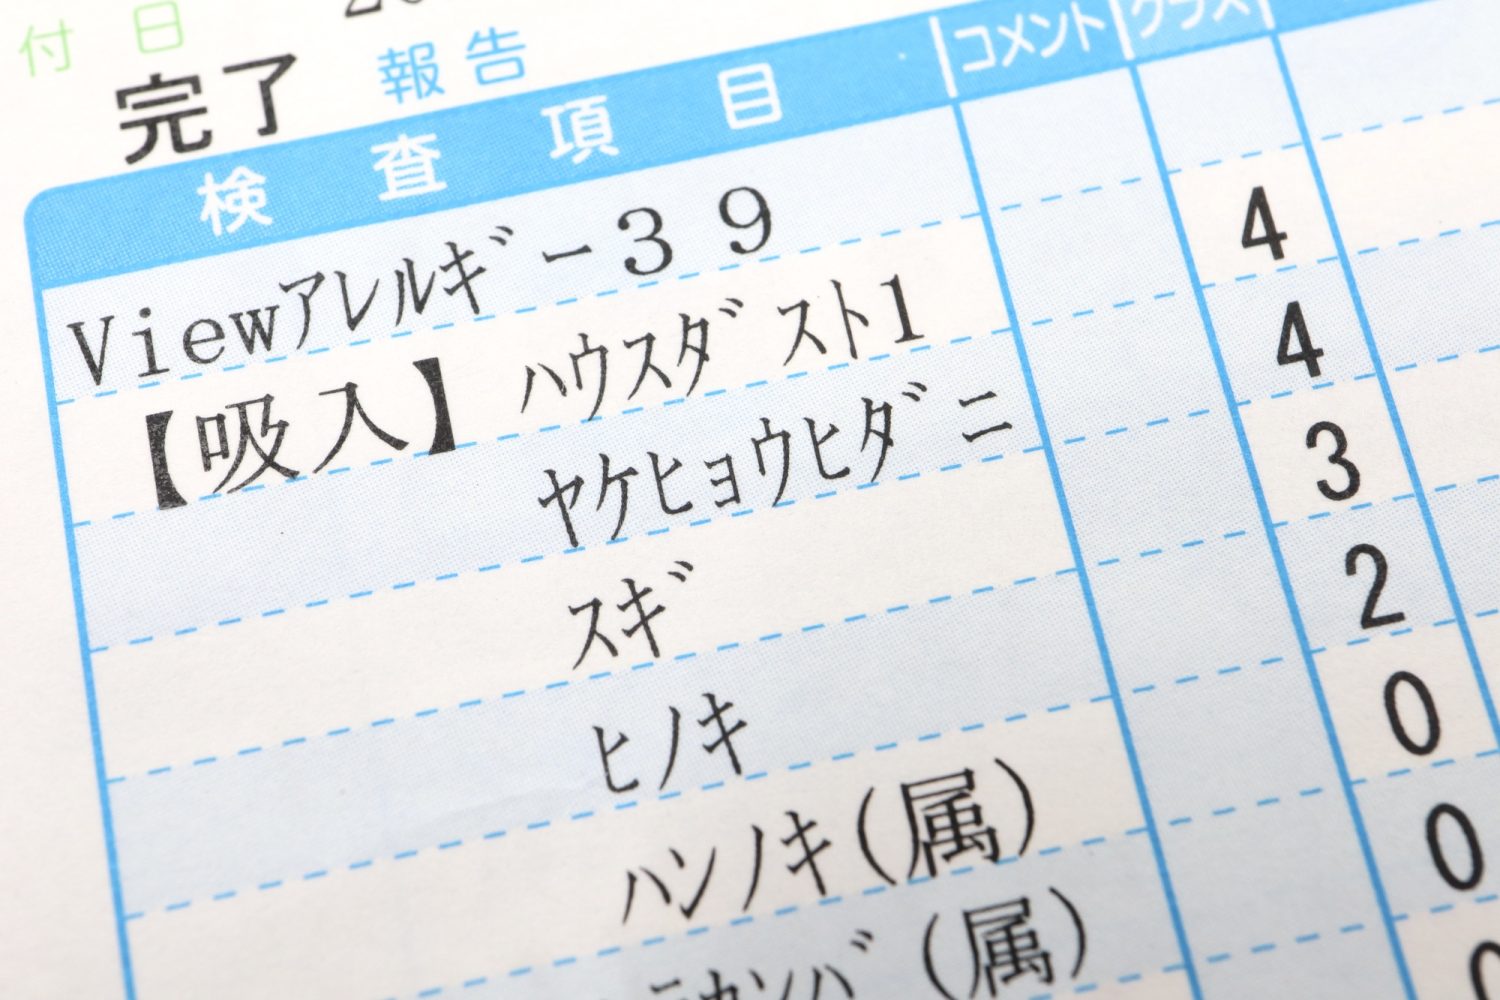 付日
完了 報告
検査項目 コメント クラス
Viewアレルギー39
【吸入】 ハウスダスト1 4
ヤケヒョウヒダニ 4
スギ 3
ヒノキ 2
ハンノキ(属) 0
(属) 0